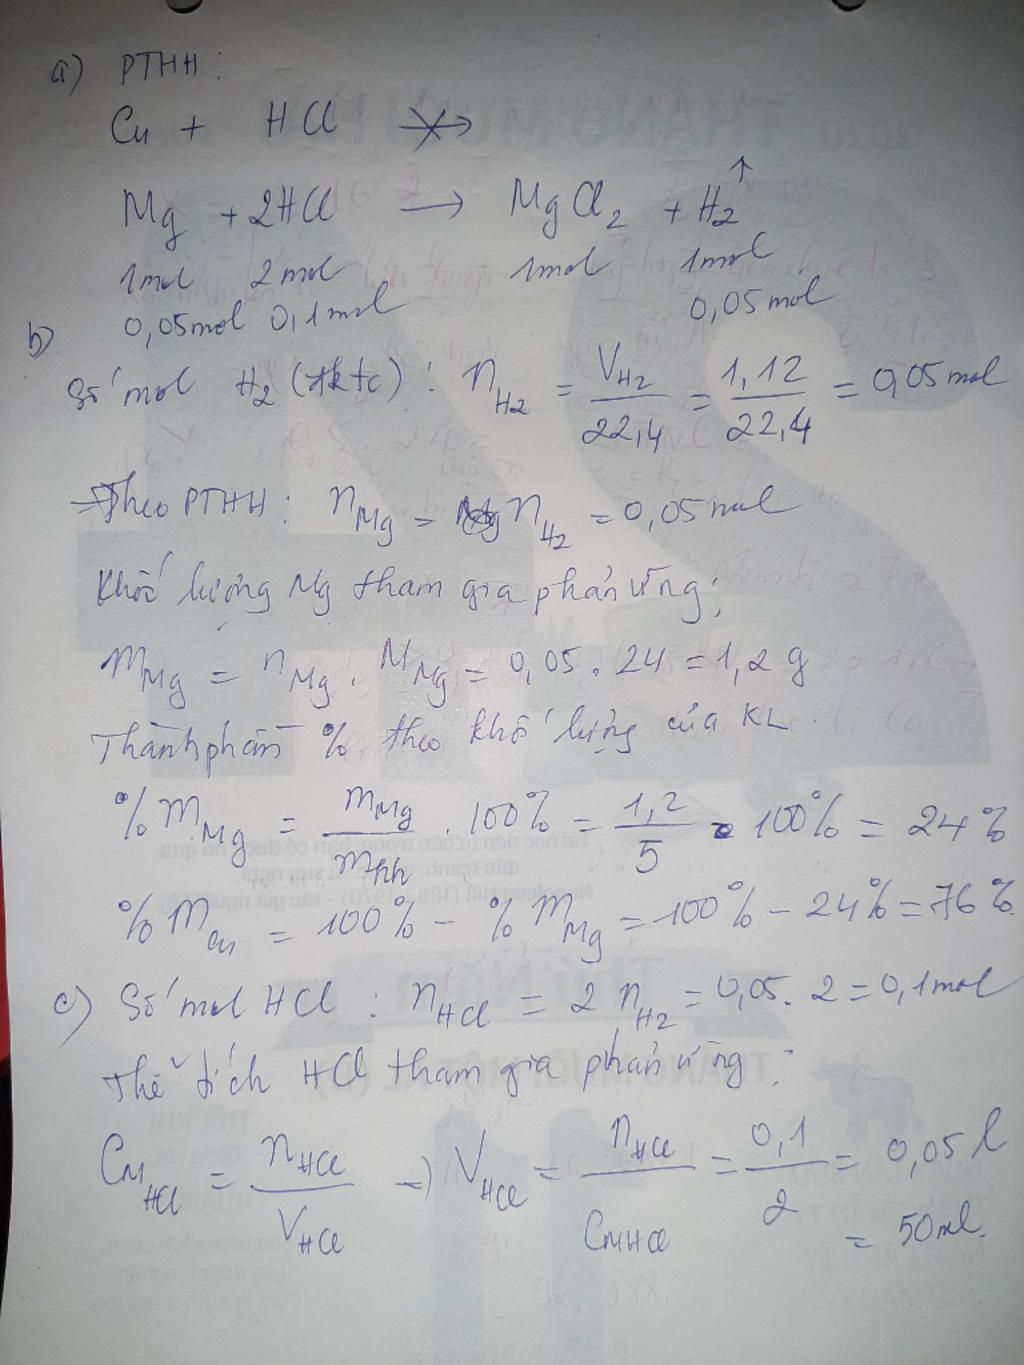 a) PTHH:
Cu + HCl ↛
Mg + 2HCl → MgCl₂ + H₂↑
1mol 2mol 1mol 1mol
0,05mol 0,1mol 0,05mol
b)
Số mol H₂ (đktc): n_H₂ = V_H₂/22,4 = 1,12/22,4 = 0,05 mol
→ Theo PTHH: n_Mg = n_H₂ = 0,05 mol
Khối lượng Mg tham gia phản ứng:
m_Mg = n_Mg . M_Mg = 0,05 . 24 = 1,2 g
Thành phần % theo khối lượng của KL
% m_Mg = m_Mg/m_hh . 100% = 1,2/5 . 100% = 24%
% m_Cu = 100% - % m_Mg = 100% - 24% = 76%
c) Số mol HCl: n_HCl = 2 n_H₂ = 0,05 . 2 = 0,1 mol
Thể tích HCl tham gia phản ứng:
C_M HCl = n_HCl/V_HCl → V_HCl = n_HCl/C_M HCl = 0,1/2 = 0,05 l
= 50 ml.